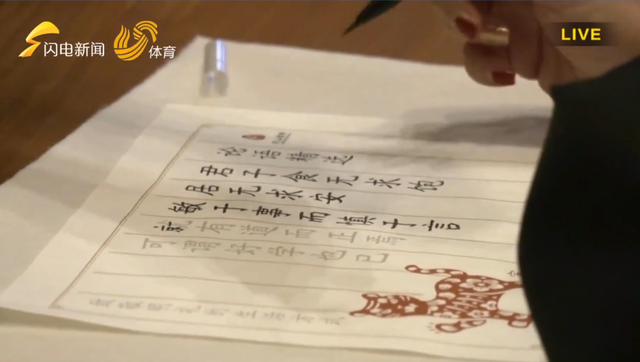 闪电新闻 体育
LIVE
论语精选
君子食无求饱
居无求安
敏于事而慎于言
就有道而正焉
可谓好学也已
的生活方式